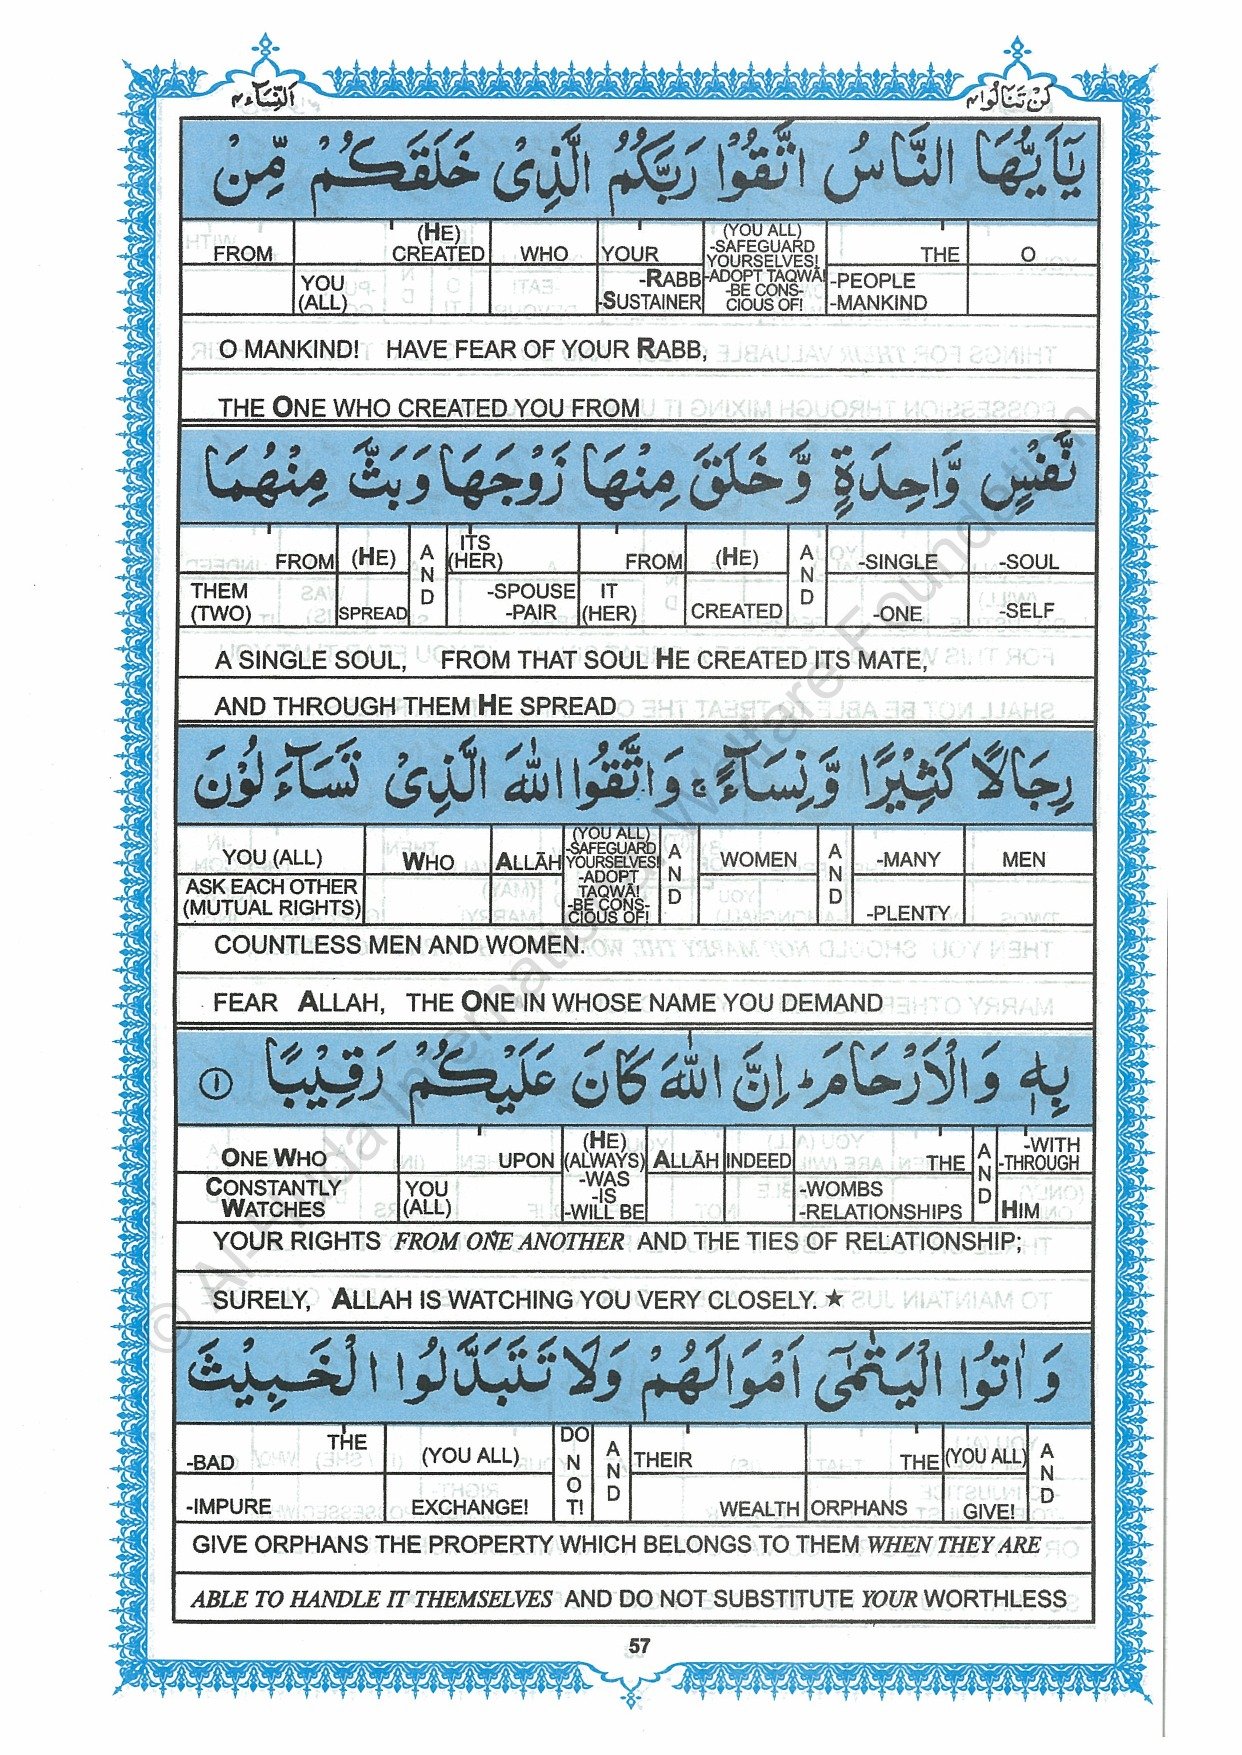 النساء ٤ لن تنالوا ٤
يٰۤاَيُّهَا النَّاسُ اتَّقُوْا رَبَّكُمُ الَّذِيْ خَلَقَكُمْ مِّنْ
FROM (HE) CREATED WHO YOUR (YOU ALL) -SAFEGUARD YOURSELVES! -ADOPT TAQWĀ! -BE CONSCIOUS OF! THE O
YOU (ALL) -RABB -SUSTAINER -PEOPLE -MANKIND
O MANKIND! HAVE FEAR OF YOUR RABB,
THE ONE WHO CREATED YOU FROM
نَّفْسٍ وَّاحِدَةٍ وَّخَلَقَ مِنْهَا زَوْجَهَا وَبَثَّ مِنْهُمَا
FROM (HE) AND ITS (HER) FROM (HE) AND -SINGLE -SOUL
THEM (TWO) SPREAD -SPOUSE -PAIR IT (HER) CREATED -ONE -SELF
A SINGLE SOUL, FROM THAT SOUL HE CREATED ITS MATE,
AND THROUGH THEM HE SPREAD
رِجَالًا كَثِيْرًا وَّنِسَآءً ۚ وَاتَّقُوا اللّٰهَ الَّذِيْ تَسَآءَلُوْنَ
YOU (ALL) WHO ALLĀH (YOU ALL) -SAFEGUARD YOURSELVES! -ADOPT TAQWĀ! -BE CONSCIOUS OF! AND WOMEN AND -MANY MEN
ASK EACH OTHER (MUTUAL RIGHTS) -PLENTY
COUNTLESS MEN AND WOMEN.
FEAR ALLAH, THE ONE IN WHOSE NAME YOU DEMAND
بِهٖ وَالْاَرْحَامَ ؕ اِنَّ اللّٰهَ كَانَ عَلَيْكُمْ رَقِيْبًا ١
ONE WHO UPON (HE) (ALWAYS) ALLĀH INDEED THE AND -WITH -THROUGH
CONSTANTLY WATCHES YOU (ALL) -WAS -IS -WILL BE -WOMBS -RELATIONSHIPS HIM
YOUR RIGHTS FROM ONE ANOTHER AND THE TIES OF RELATIONSHIP;
SURELY, ALLAH IS WATCHING YOU VERY CLOSELY. ★
وَاٰتُوا الْيَتٰمٰۤى اَمْوَالَهُمْ وَلَا تَتَبَدَّلُوا الْخَبِيْثَ
-BAD THE (YOU ALL) DO NOT! AND THEIR THE (YOU ALL) AND
-IMPURE EXCHANGE! WEALTH ORPHANS GIVE!
GIVE ORPHANS THE PROPERTY WHICH BELONGS TO THEM WHEN THEY ARE
ABLE TO HANDLE IT THEMSELVES AND DO NOT SUBSTITUTE YOUR WORTHLESS
57
© Al-Huda International Welfare Foundation